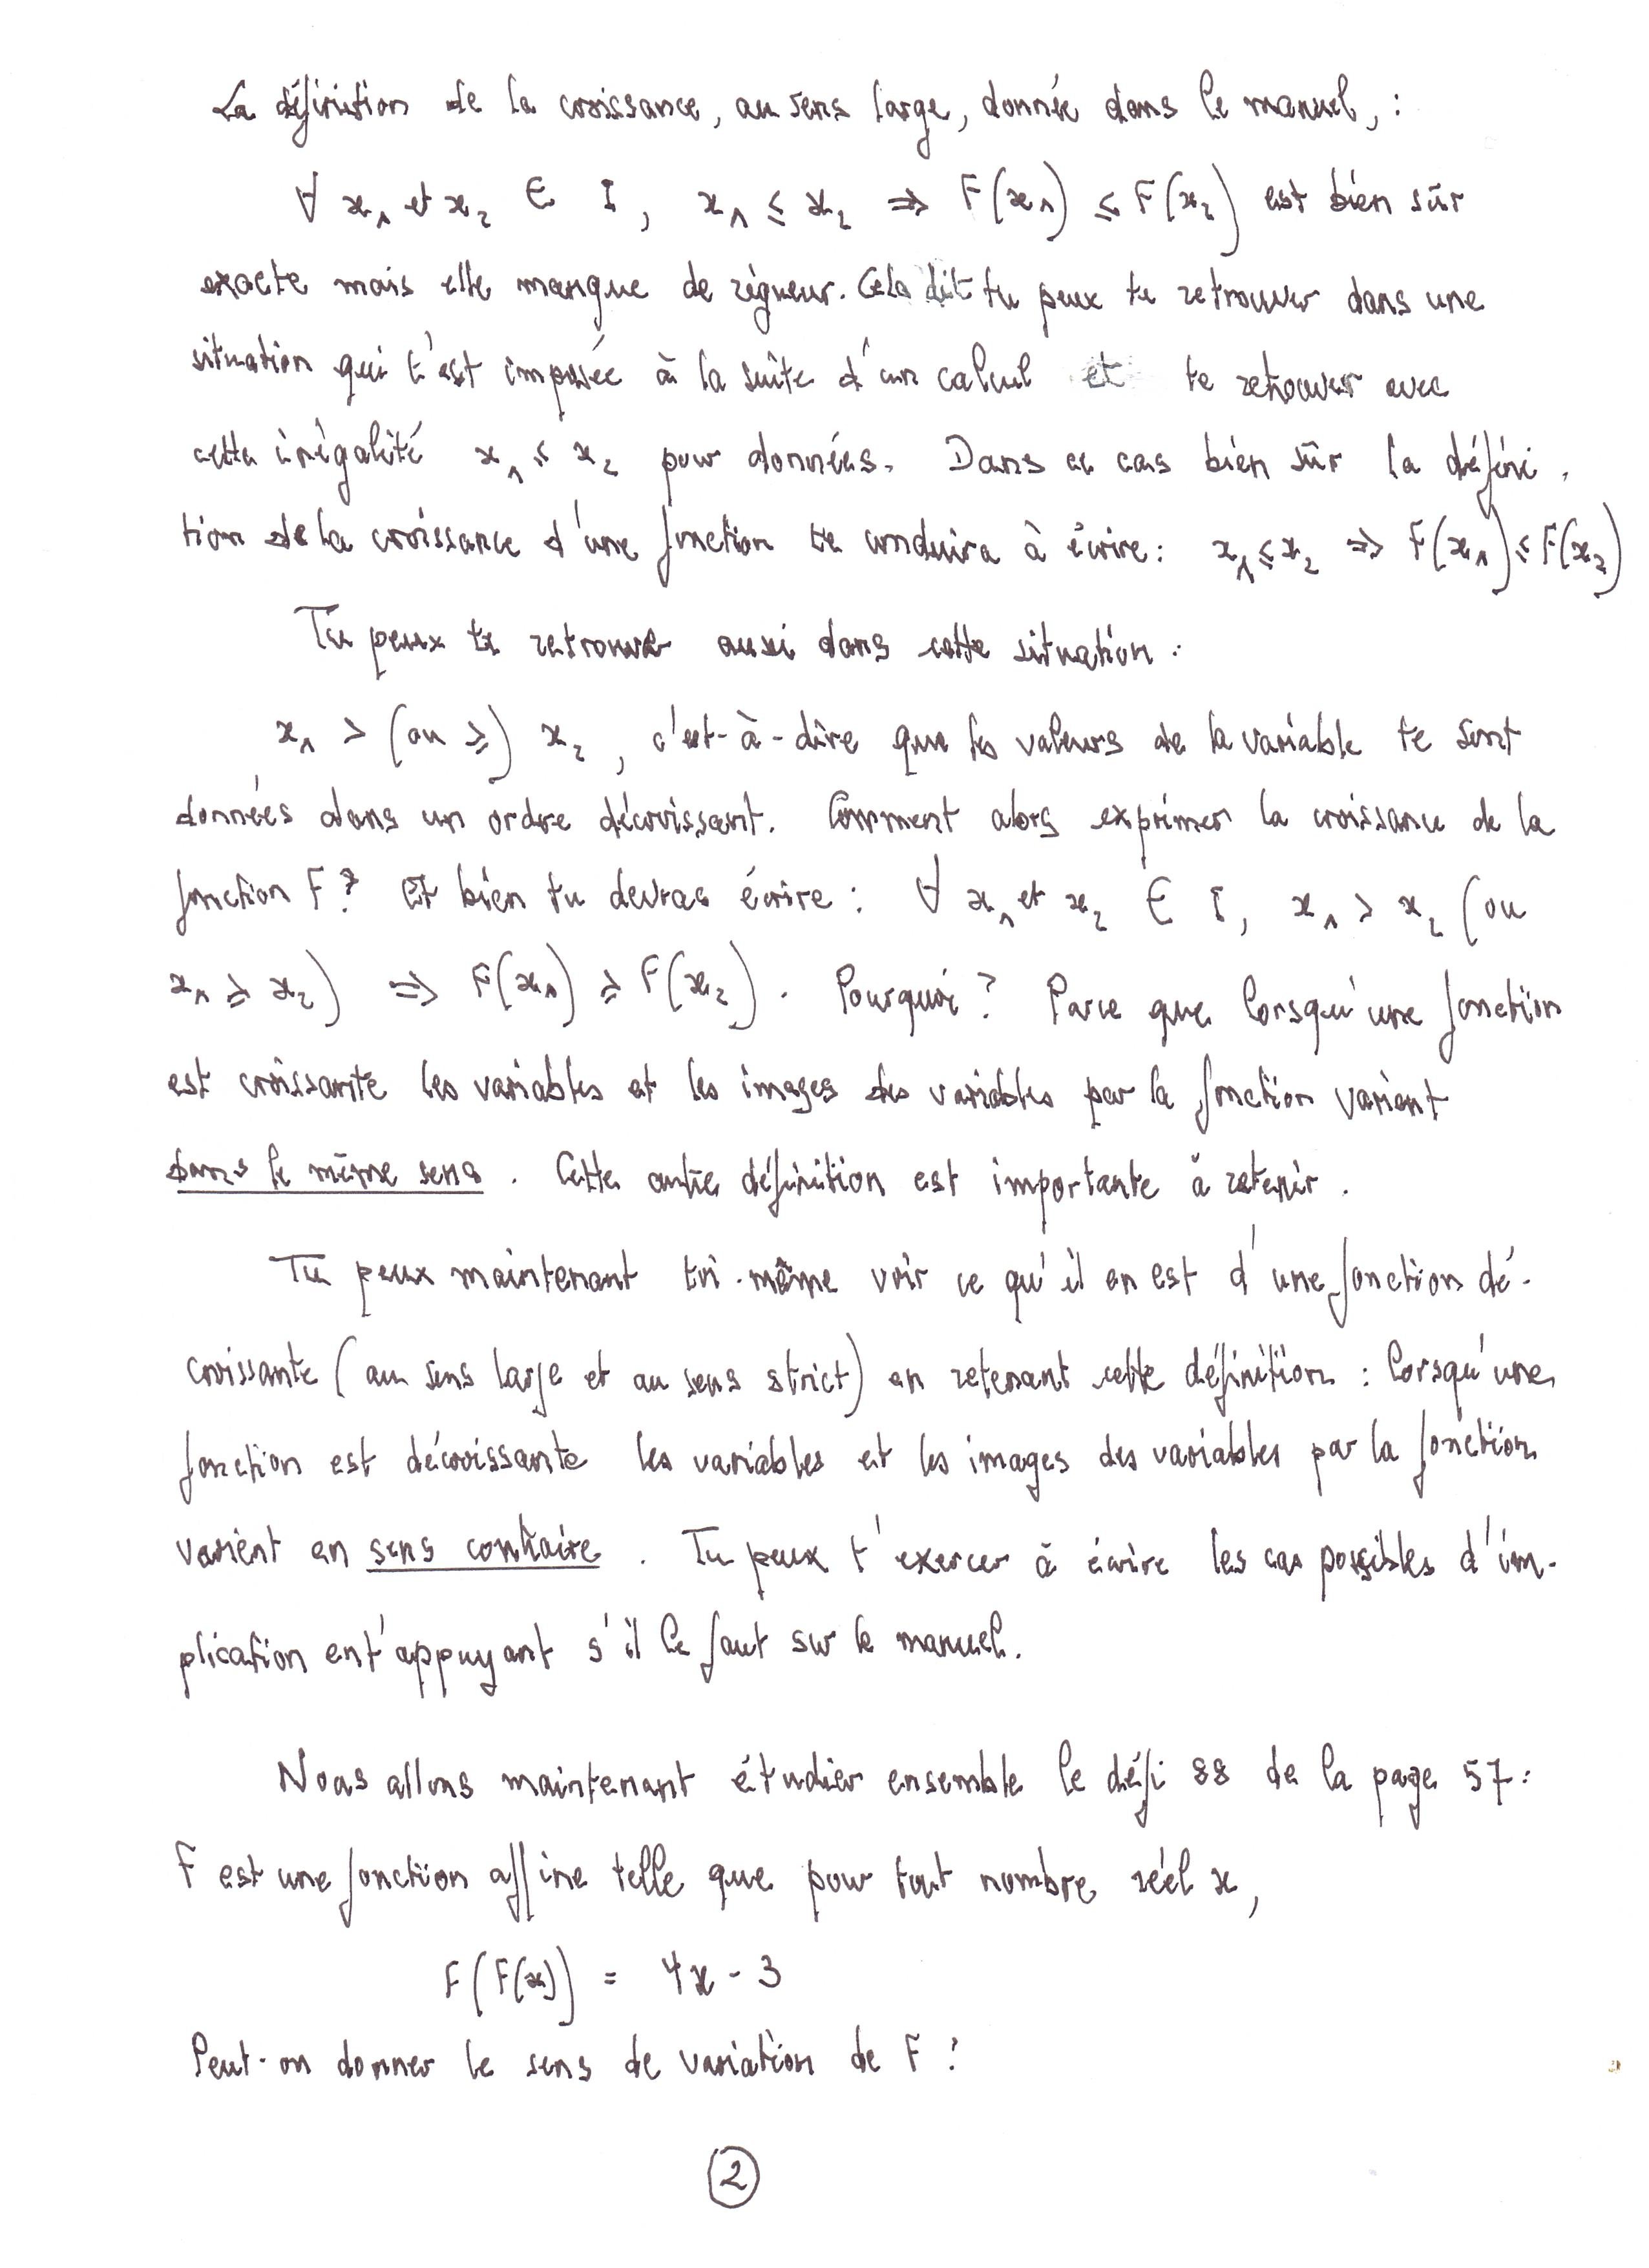 La définition de la croissance, au sens large, donnée dans le manuel, :
∀ x₁ et x₂ ∈ I, x₁ ⩽ x₂ ⇒ F(x₁) ⩽ F(x₂) est bien sûr
exacte mais elle manque de rigueur. Cela dit tu peux te retrouver dans une
situation qui t'est imposée à la suite d'un calcul et te retrouver avec
cette inégalité x₁ ⩽ x₂ pour données. Dans ce cas bien sûr la défini-
tion de la croissance d'une fonction te conduira à écrire : x₁ ⩽ x₂ ⇒ F(x₁) ⩽ F(x₂)
Tu peux te retrouver aussi dans cette situation :
x₁ > (ou ⩾) x₂, c'est-à-dire que les valeurs de la variable te sont
données dans un ordre décroissant. Comment alors exprimer la croissance de la
fonction F ? Et bien tu devras écrire : ∀ x₁ et x₂ ∈ I, x₁ > x₂ (ou
x₁ ⩾ x₂) ⇒ F(x₁) ⩾ F(x₂). Pourquoi ? Parce que lorsqu'une fonction
est croissante les variables et les images des variables par la fonction varient
dans le même sens. Cette autre définition est importante à retenir.
Tu peux maintenant toi-même voir ce qu'il en est d'une fonction dé-
croissante (au sens large et au sens strict) en retenant cette définition : lorsqu'une
fonction est décroissante les variables et les images des variables par la fonction
varient en sens contraire. Tu peux t'exercer à écrire les cas possibles d'im-
plication en t'appuyant s'il le faut sur le manuel.
Nous allons maintenant étudier ensemble le défi 88 de la page 57 :
F est une fonction affine telle que pour tout nombre réel x,
F(F(x)) = 4x - 3
Peut-on donner le sens de variation de F ?
2